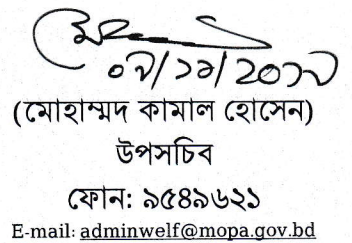 (মোহাম্মদ কামাল হোসেন)
উপসচিব
ফোন: ৯৫৪৯৬২১
E-mail: adminwelf@mopa.gov.bd